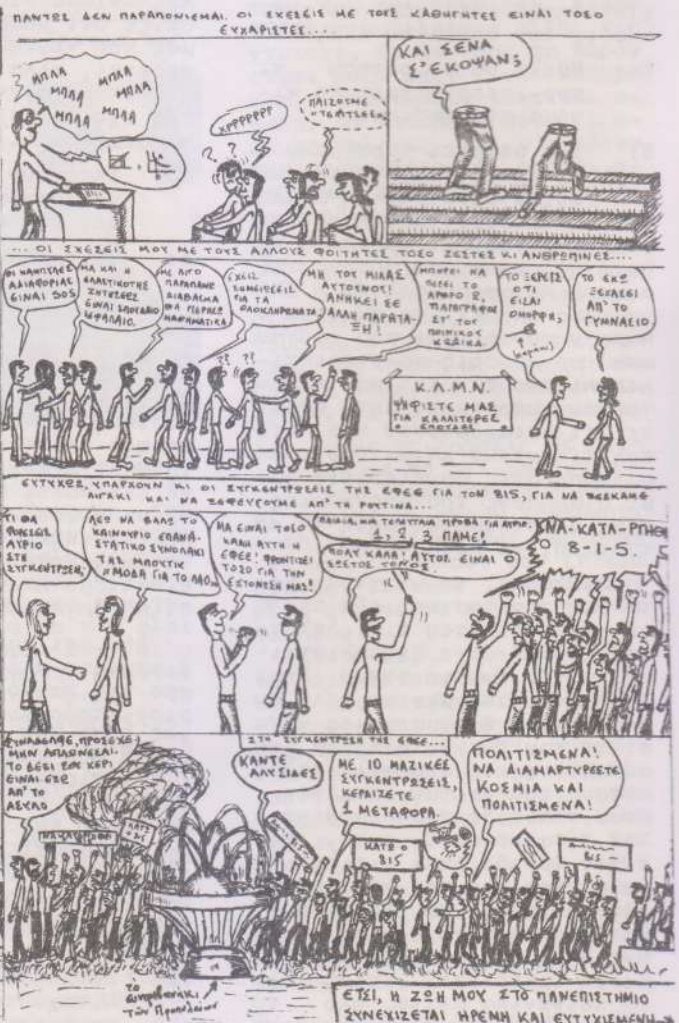 ΠΑΝΤΩΣ ΔΕΝ ΠΑΡΑΠΟΝΙΕΜΑΙ. ΟΙ ΣΧΕΣΕΙΣ ΜΕ ΤΟΥΣ ΚΑΘΗΓΗΤΕΣ ΕΙΝΑΙ ΤΟΣΟ
ΕΥΧΑΡΙΣΤΕΣ...
ΜΠΛΑ ΜΠΛΑ
ΜΠΛΑ ΜΠΛΑ
ΜΠΛΑ ΜΠΛΑ
ΧΡΡΡΡΡΡ
ΠΑΙΖΟΥΜΕ
? ?
ΚΑΙ ΣΕΝΑ
Σ' ΕΚΟΨΑΝ;
... ΟΙ ΣΧΕΣΕΙΣ ΜΟΥ ΜΕ ΤΟΥΣ ΑΛΛΟΥΣ ΦΟΙΤΗΤΕΣ ΤΟΣΟ ΖΕΣΤΕΣ ΚΙ ΑΝΘΡΩΠΙΝΕΣ...
ΟΙ ΚΑΜΠΥΛΕΣ
ΑΔΙΑΦΟΡΙΑΣ
ΕΙΝΑΙ SOS
ΜΑ ΚΑΙ Η
ΕΛΑΣΤΙΚΟΤΗΣ
ΖΗΤΗΣΕΩΣ
ΕΙΝΑΙ ΣΠΟΥΔΑΙΟ
ΚΕΦΑΛΑΙΟ.
ΜΕ ΛΙΓΟ
ΠΑΡΑΠΑΝΩ
ΔΙΑΒΑΣΜΑ
ΘΑ ΠΕΡΝΑΣ
ΜΑΘΗΜΑΤΙΚΑ
ΕΧΕΙΣ
ΣΗΜΕΙΩΣΕΙΣ
ΓΙΑ ΤΑ
ΟΛΟΚΛΗΡΩΜΑΤΑ
?? ??
ΜΗ ΤΟΥ ΜΙΛΑΣ
ΑΥΤΟΥΝΟΥ!
ΑΝΗΚΕΙ ΣΕ
ΑΛΛΗ ΠΑΡΑΤΑ-
ΞΗ!
ΜΠΟΡΕΙ ΝΑ
ΠΕΣΕΙ ΤΟ
ΑΡΘΡΟ 2,
ΠΑΡΑΓΡΑΦΟΣ
ΣΤ' ΤΟΥ
ΠΟΙΝΙΚΟΥ
ΚΩΔΙΚΑ.
Κ.Λ.Μ.Ν.
ΨΗΦΙΣΤΕ ΜΑΣ
ΓΙΑ ΚΑΛΛΙΤΕΡΕΣ
ΣΠΟΥΔΕΣ
ΤΟ ΞΕΡΕΙΣ
ΟΤΙ
ΕΙΣΑΙ
ΟΜΟΡΦΗ,
ΤΟ ΕΧΩ
ΞΕΧΑΣΕΙ
ΑΠ' ΤΟ
ΓΥΜΝΑΣΙΟ
ΕΥΤΥΧΩΣ, ΥΠΑΡΧΟΥΝ ΚΙ ΟΙ ΣΥΓΚΕΝΤΡΩΣΕΙΣ ΤΗΣ ΕΦΕΕ ΓΙΑ ΤΟΝ 815, ΓΙΑ ΝΑ ΞΕΣΚΑΜΕ
ΛΙΓΑΚΙ ΚΑΙ ΝΑ ΞΕΦΕΥΓΟΥΜΕ ΑΠ' ΤΗ ΡΟΥΤΙΝΑ...
ΤΙ ΘΑ
ΦΟΡΕΣΕΙΣ
ΑΥΡΙΟ
ΣΤΗ
ΣΥΓΚΕΝΤΡΩΣΗ;
ΛΕΩ ΝΑ ΒΑΛΩ ΤΟ
ΚΑΙΝΟΥΡΙΟ ΕΠΑΝΑ-
ΣΤΑΤΙΚΟ ΣΥΝΟΛΑΚΙ
ΤΗΣ ΜΠΟΥΤΙΚ
"ΜΟΔΑ ΓΙΑ ΤΟ ΛΑΟ".
ΜΑ ΕΙΝΑΙ ΤΟΣΟ
ΚΑΛΗ ΑΥΤΗ Η
ΕΦΕΕ! ΦΡΟΝΤΙΖΕΙ
ΤΟΣΟ ΓΙΑ ΤΗΝ
ΕΚΤΟΝΩΣΗ ΜΑΣ!
ΠΑΙΔΙΑ, ΜΙΑ ΤΕΛΕΥΤΑΙΑ ΠΡΟΒΑ ΓΙΑ ΑΥΡΙΟ.
1, 2, 3 ΠΑΜΕ!
ΠΟΛΥ ΚΑΛΑ! ΑΥΤΟΣ ΕΙΝΑΙ Ο
ΣΩΣΤΟΣ ΤΟΝΟΣ.
ΝΑ-ΚΑΤΑ-ΡΓΗΘΕΙ
Ο 8-1-5.
ΣΤΗ ΣΥΓΚΕΝΤΡΩΣΗ ΤΗΣ ΕΦΕΕ...
ΣΥΝΑΔΕΛΦΕ, ΠΡΟΣΕΧΕ
ΜΗΝ ΑΠΛΩΝΕΣΑΙ.
ΤΟ ΔΕΞΙ ΣΟΥ ΧΕΡΙ
ΕΙΝΑΙ ΕΞΩ
ΑΠ' ΤΟ
ΑΣΥΛΟ
ΚΑΝΤΕ
ΑΛΥΣΙΔΕΣ
ΜΕ 10 ΜΑΖΙΚΕΣ
ΣΥΓΚΕΝΤΡΩΣΕΙΣ,
ΚΕΡΔΙΖΕΤΕ
1 ΜΕΤΑΦΟΡΑ.
ΠΟΛΙΤΙΣΜΕΝΑ!
ΝΑ ΔΙΑΜΑΡΤΥΡΕΣΤΕ
ΚΟΣΜΙΑ ΚΑΙ
ΠΟΛΙΤΙΣΜΕΝΑ!
ΚΑΤΩ Ο
815
815
ΤΟ
ΣΥΝΤΡΙΒΑΝΑΚΙ
ΤΩΝ Προπυλαίων
ΕΤΣΙ, Η ΖΩΗ ΜΟΥ ΣΤΟ ΠΑΝΕΠΙΣΤΗΜΙΟ
ΣΥΝΕΧΙΖΕΤΑΙ ΗΡΕΜΗ ΚΑΙ ΕΥΤΥΧΙΣΜΕΝΗ